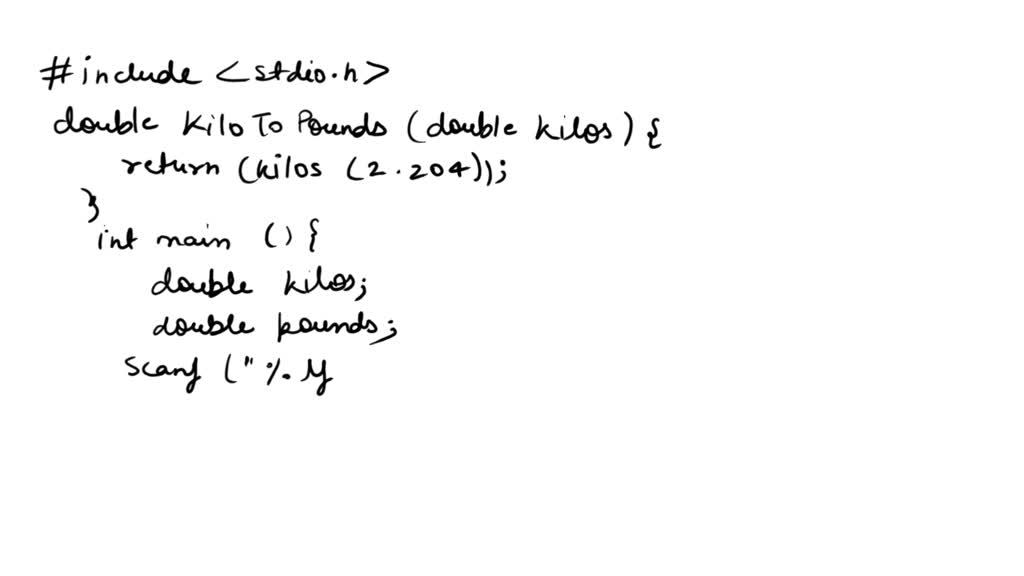 #include <stdio.h>
double Kilo To Pounds (double kilos) {
return (kilos (2.204));
}
int main () {
double kilos;
double pounds;
scanf (" %. lf